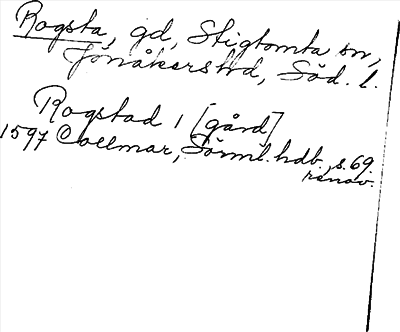 Rogsta, gd, Stigtomta sn,
Jönåkers hd, Söd. l.
Rogstad 1 [gård]
1597 Collmar, Sörml. hdb., s. 69.
renov.